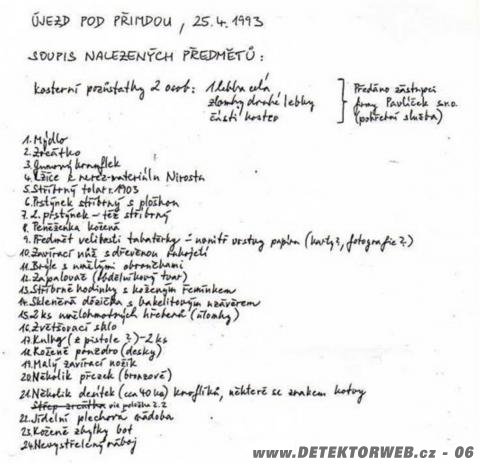 ÚJEZD POD PŘIMDOU, 25.4.1993
SOUPIS NALEZENÝCH PŘEDMĚTŮ:
kosterní pozůstatky 2 osob: 1 lebka celá
zlomky druhé lebky
části kosteo
Předáno zástupci
firmy Pavlíček s.r.o.
(pohřební služba)
1. Mýdlo
2. Zrcátko
3. Gumový knoflek
4. Lžíce z nerez-materiálu Nirosta
5. Stříbrný tolar r. 1903
6. Prstýnek stříbrný s ploškou
7. 2. prstýnek - též stříbrný
8. Peněženka kožená
9. Předmět velikosti tabatěrky - uvnitř vrstvy papíru (karty?, fotografie?)
10. Zavírací nůž s dřevěnou rukojetí
11. Brýle s umělými obroučkami
12. Zapalovač (obdélníkový tvar)
13. Stříbrné hodinky s koženým řemínkem
14. Skleněná dózička s bakelitovým uzávěrem
15. 2 ks umělohmotných hřebenů (úlomky)
16. Zvětšovací sklo
17. Kulky (z pistole?) - 2 ks
18. Kožené pouzdro (desky)
19. Malý zavírací nožík
20. Několik přezek (bronzové)
21. Několik desítek (cca 40 ks) knoflíků, některé se znakem kotvy
Střep zrcátka viz položka č. 2
22. Jídelní plechová nádoba
23. Kožené zbytky bot
24. Nevystřelený náboj
www.DETEKTORWEB.cz - 06